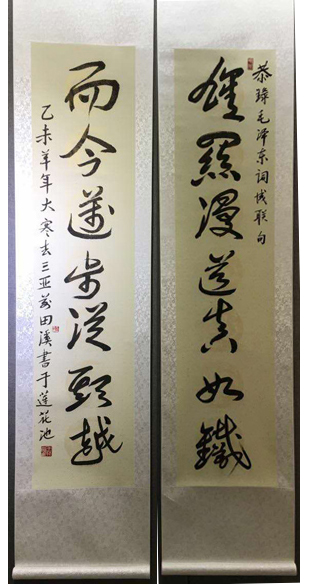 恭 毛泽东词成联句
雄關漫道真如鐵
而今邁步從頭越
乙未羊年大寒去三亚前田溪書于蓮花池